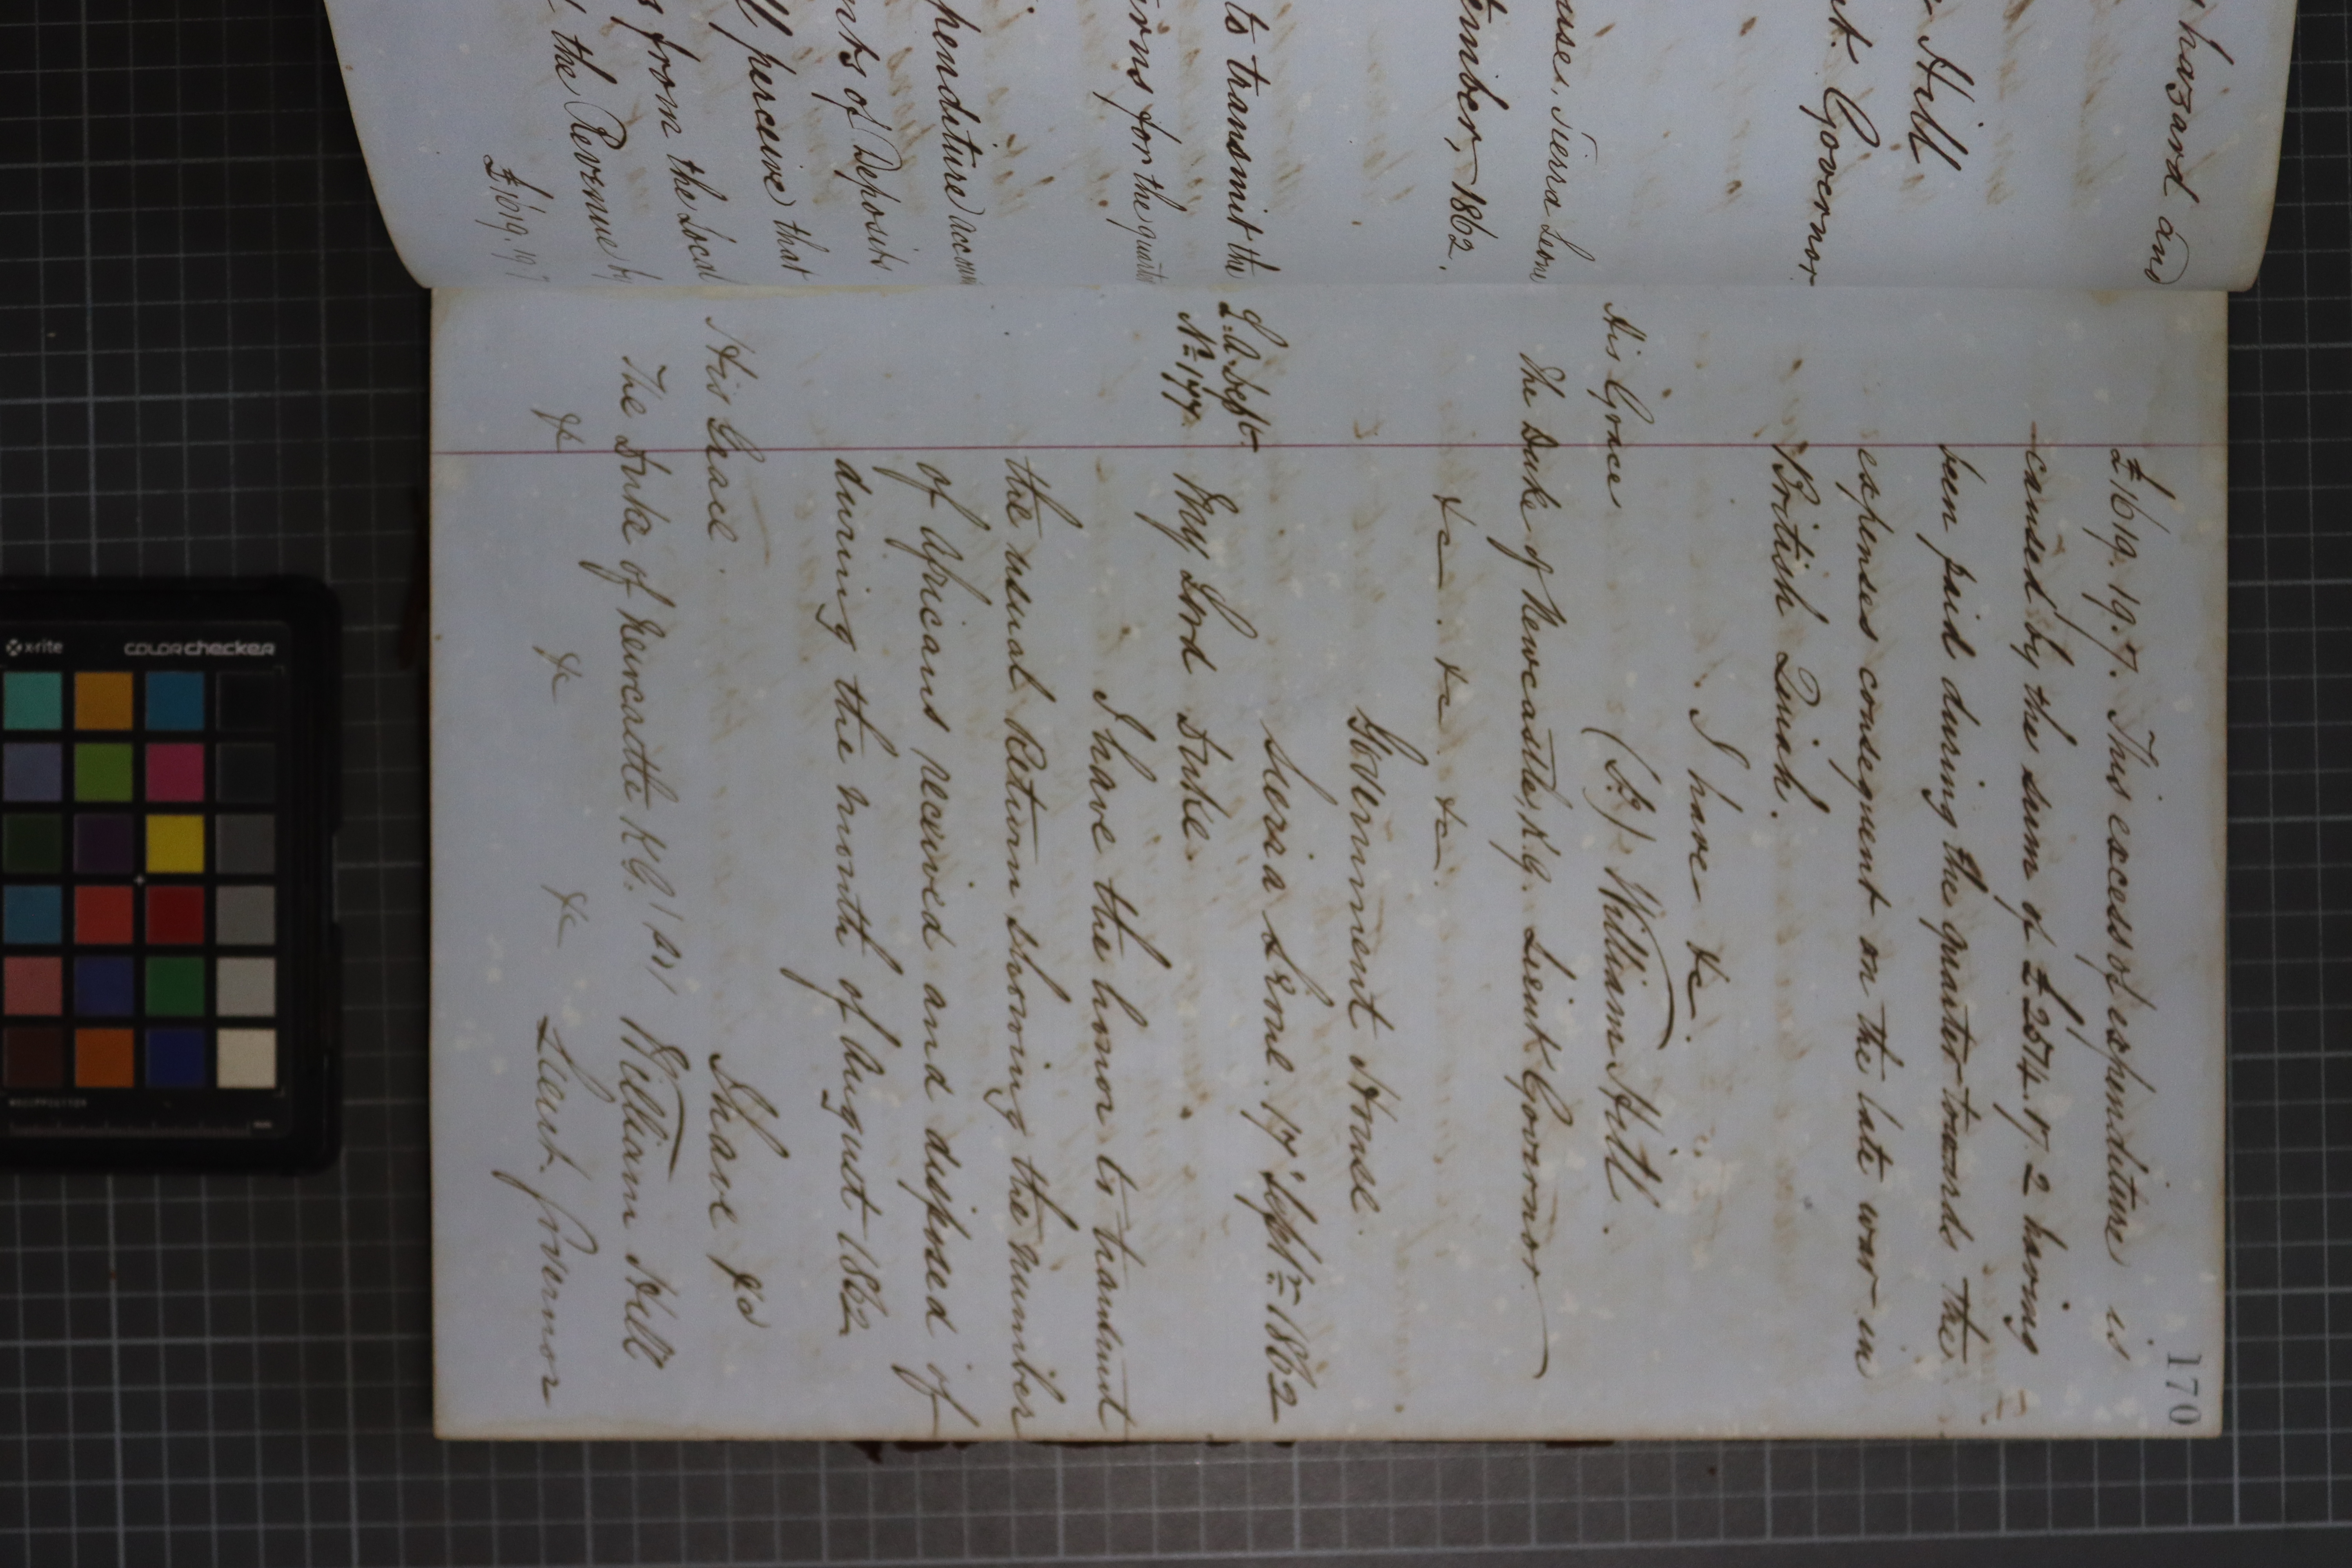 hazard and
Hill
nt. Governor
uses, Sierra Leone
tember, 1862.
to transmit the
urns for the quarter
penditure account
nts of Deposits
ll perceive that
s from the Local
the Revenue by
£1619.19.7
170
£1619.19.7. This excess of expenditure is
caused by the sum of £2574.17.2 having
been paid during the quarter towards the
expenses consequent on the late war in
British Quiah.
I have &c.
(Sd) William Hill.
His Grace
The Duke of Newcastle, K.G. Lieut Governor
&c. &c. &c.
Government House.
Sierra Leone. 17 Septr. 1862
L.A. Dept.
No. 177.
My Lord Duke.
I have the honor to transmit
the usual Return showing the number
of Africans received and disposed of
during the month of August 1862
I have &c
His Grace.
The Duke of Newcastle K.G. (Sd) William Hill
&c &c &c Lieut. Governor
x-rite
colorchecker